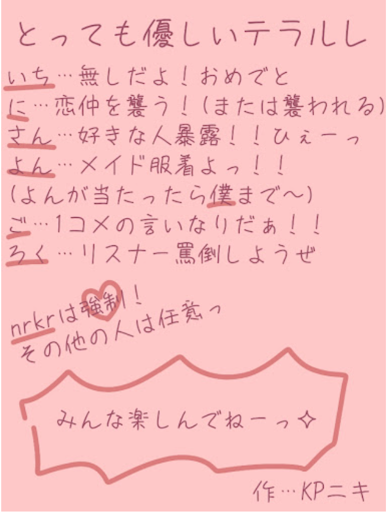 とっても優しいテラルレ
いち…無しだよ！おめでと
に…恋仲を襲う！(または襲われる)
さん…好きな人暴露！！ひぇーっ
よん…メイド服着よっ！！
(よんが当たったら僕まで〜)
ご…1コメの言いなりだぁ！！
ろく…リスナー罵倒しようぜ
nrkrは強制！
その他の人は任意っ
みんな楽しんでねーっ✧
作…KPニキ